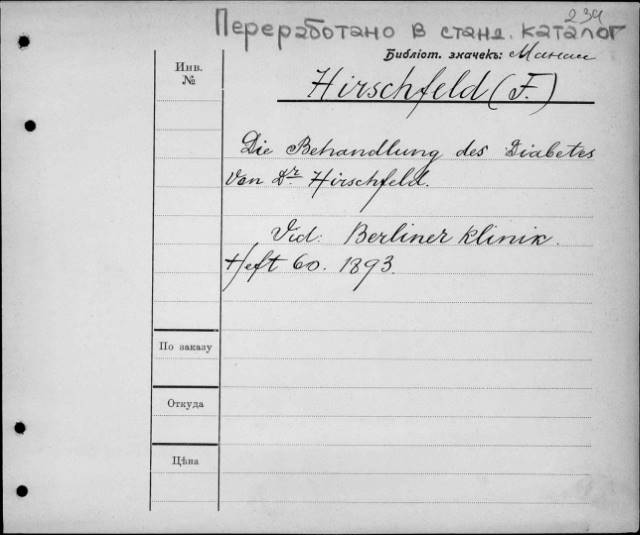 239
Переработано в станд. каталог
Библіот. значекъ:
Инв.
№
Hirschfeld (F.)
Die Behandlung des Diabetes
Von Dr. Hirschfeld.
Vid: Berliner Klinik.
Heft 60. 1893.
По заказу
Откуда
Цѣна